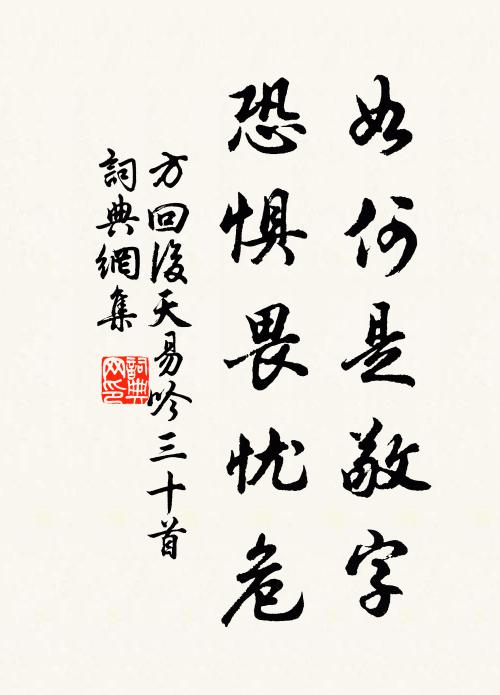 如何是敬字
恐惧畏忧危
方回後天易吟三十首
詞典網集
詞典网印